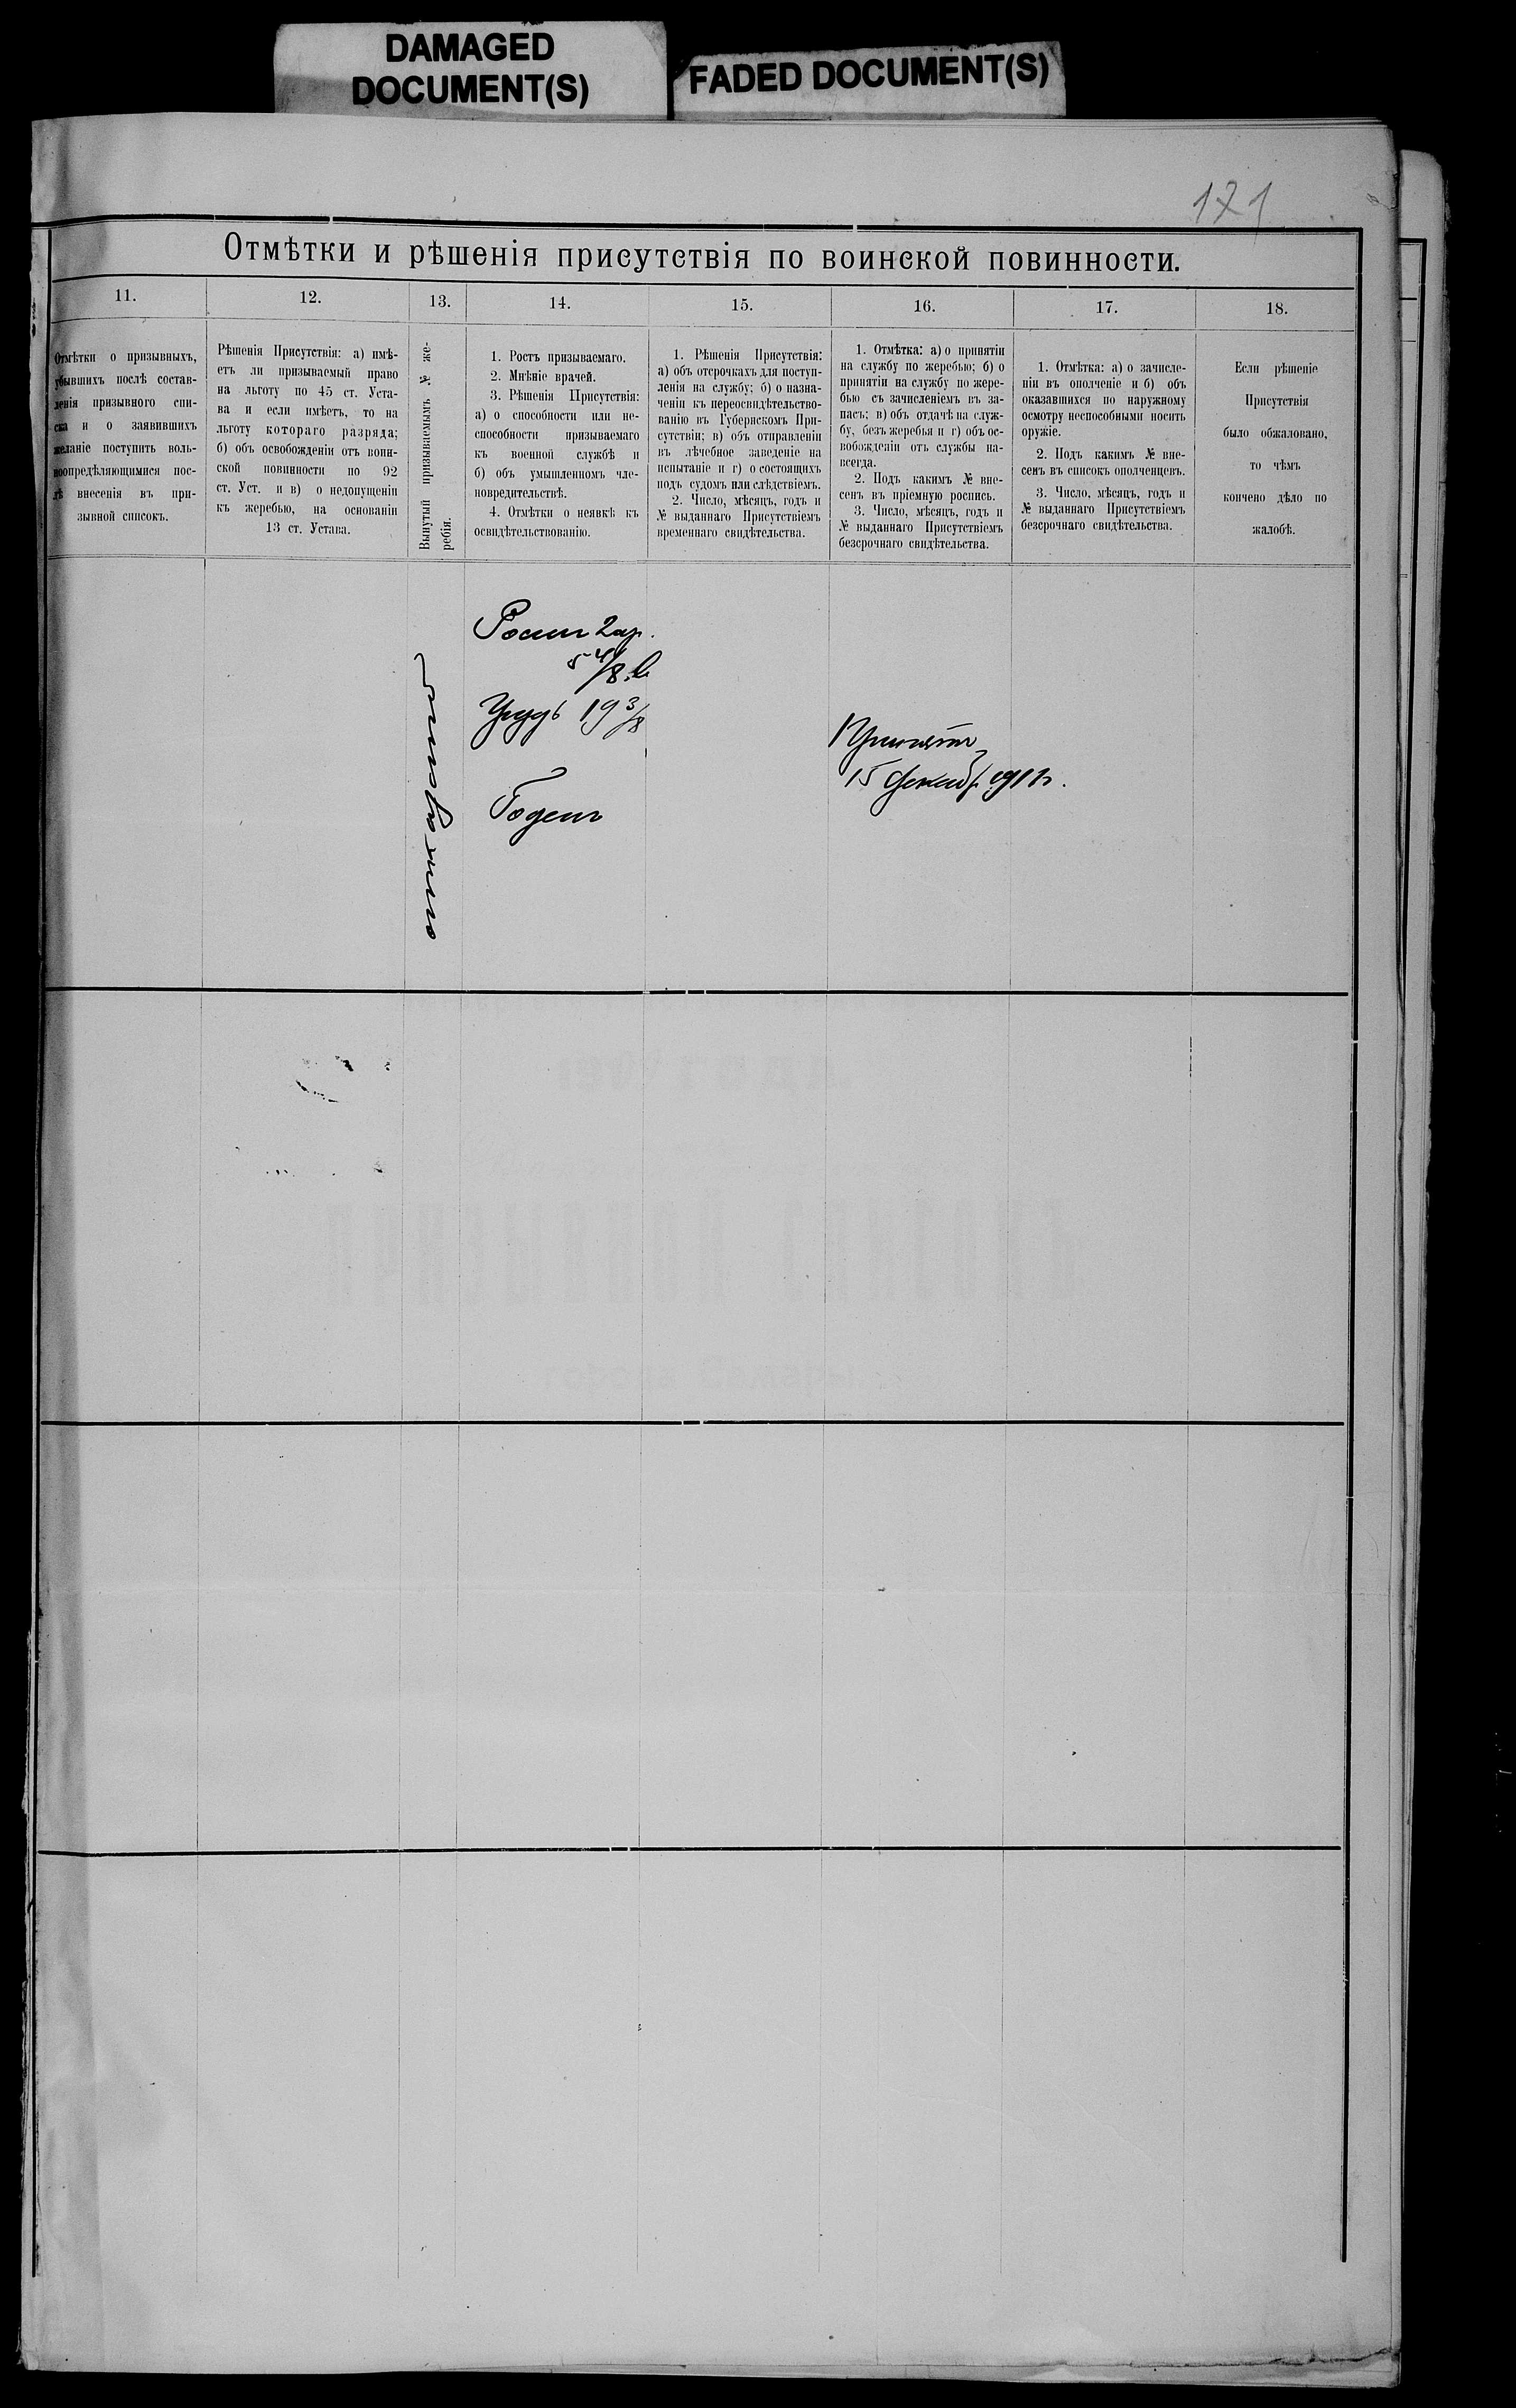 DAMAGED
DOCUMENT(S)
FADED DOCUMENT(S)
171
Отмѣтки и рѣшенія присутствія по воинской повинности.
11.
Отмѣтки о призывныхъ,
убывшихъ послѣ состав-
ленія призывного спи-
ска и о заявившихъ
желаніе поступить воль-
ноопредѣляющимися пос-
лѣ внесенія въ при-
зывной списокъ.
12.
Рѣшенія Присутствія: а) имѣ-
етъ ли призываемый право
на льготу по 45 ст. Уста-
ва и если имѣетъ, то на
льготу котораго разряда;
б) объ освобожденіи от воин-
ской повинности по 92
ст. Уст. и в) о недопущеніи
къ жеребью, на основаніи
13 ст. Устава.
13.
Вынутый призываемымъ № же-
ребія.
14.
1. Ростъ призываемаго.
2. Мнѣніе врачей.
3. Рѣшенія Присутствія:
а) о способности или не-
способности призываемаго
къ военной службѣ и
б) объ умышленномъ чле-
новредительствѣ.
4. Отмѣтки о неявкѣ къ
освидѣтельствованію.
15.
1. Рѣшенія Присутствія:
а) объ отсрочкахъ для поступ-
ленія на службу; б) о назна-
ченіи къ переосвидѣтельство-
ванію въ Губернскомъ При-
сутствіи; в) объ отправленіи
въ лѣчебное заведеніе на
испытаніе и г) о состоящихъ
подъ судомъ или слѣдствіемъ.
2. Число, мѣсяцъ, годъ и
№ выданнаго Присутствіемъ
временнаго свидѣтельства.
16.
1. Отмѣтка: а) о принятіи
на службу по жеребью; б) о
принятіи на службу по жере-
бью съ зачисленіемъ въ за-
пасъ; в) объ отдачѣ на служ-
бу, безъ жеребья и г) объ ос-
вобожденіи отъ службы на-
всегда.
2. Подъ какимъ № вне-
сенъ въ пріемную роспись.
3. Число, мѣсяцъ, годъ и
№ выданнаго Присутствіемъ
безсрочнаго свидѣтельства.
17.
1. Отмѣтка: а) о зачисле-
ніи въ ополченіе и б) объ
оказавшихся по наружному
осмотру неспособными носить
оружіе.
2. Подъ какимъ № вне-
сенъ въ списокъ ополченцевъ.
3. Число, мѣсяцъ, годъ и
№ выданнаго Присутствіемъ
безсрочнаго свидѣтельства.
18.
Если рѣшеніе
Присутствія
было обжаловано,
то чѣмъ
кончено дѣло по
жалобѣ.
Ростъ 2 ар.
5 4/8 в.
Грудь 19 3/8
Годенъ
Принятъ
15 декаб. 1911 г.